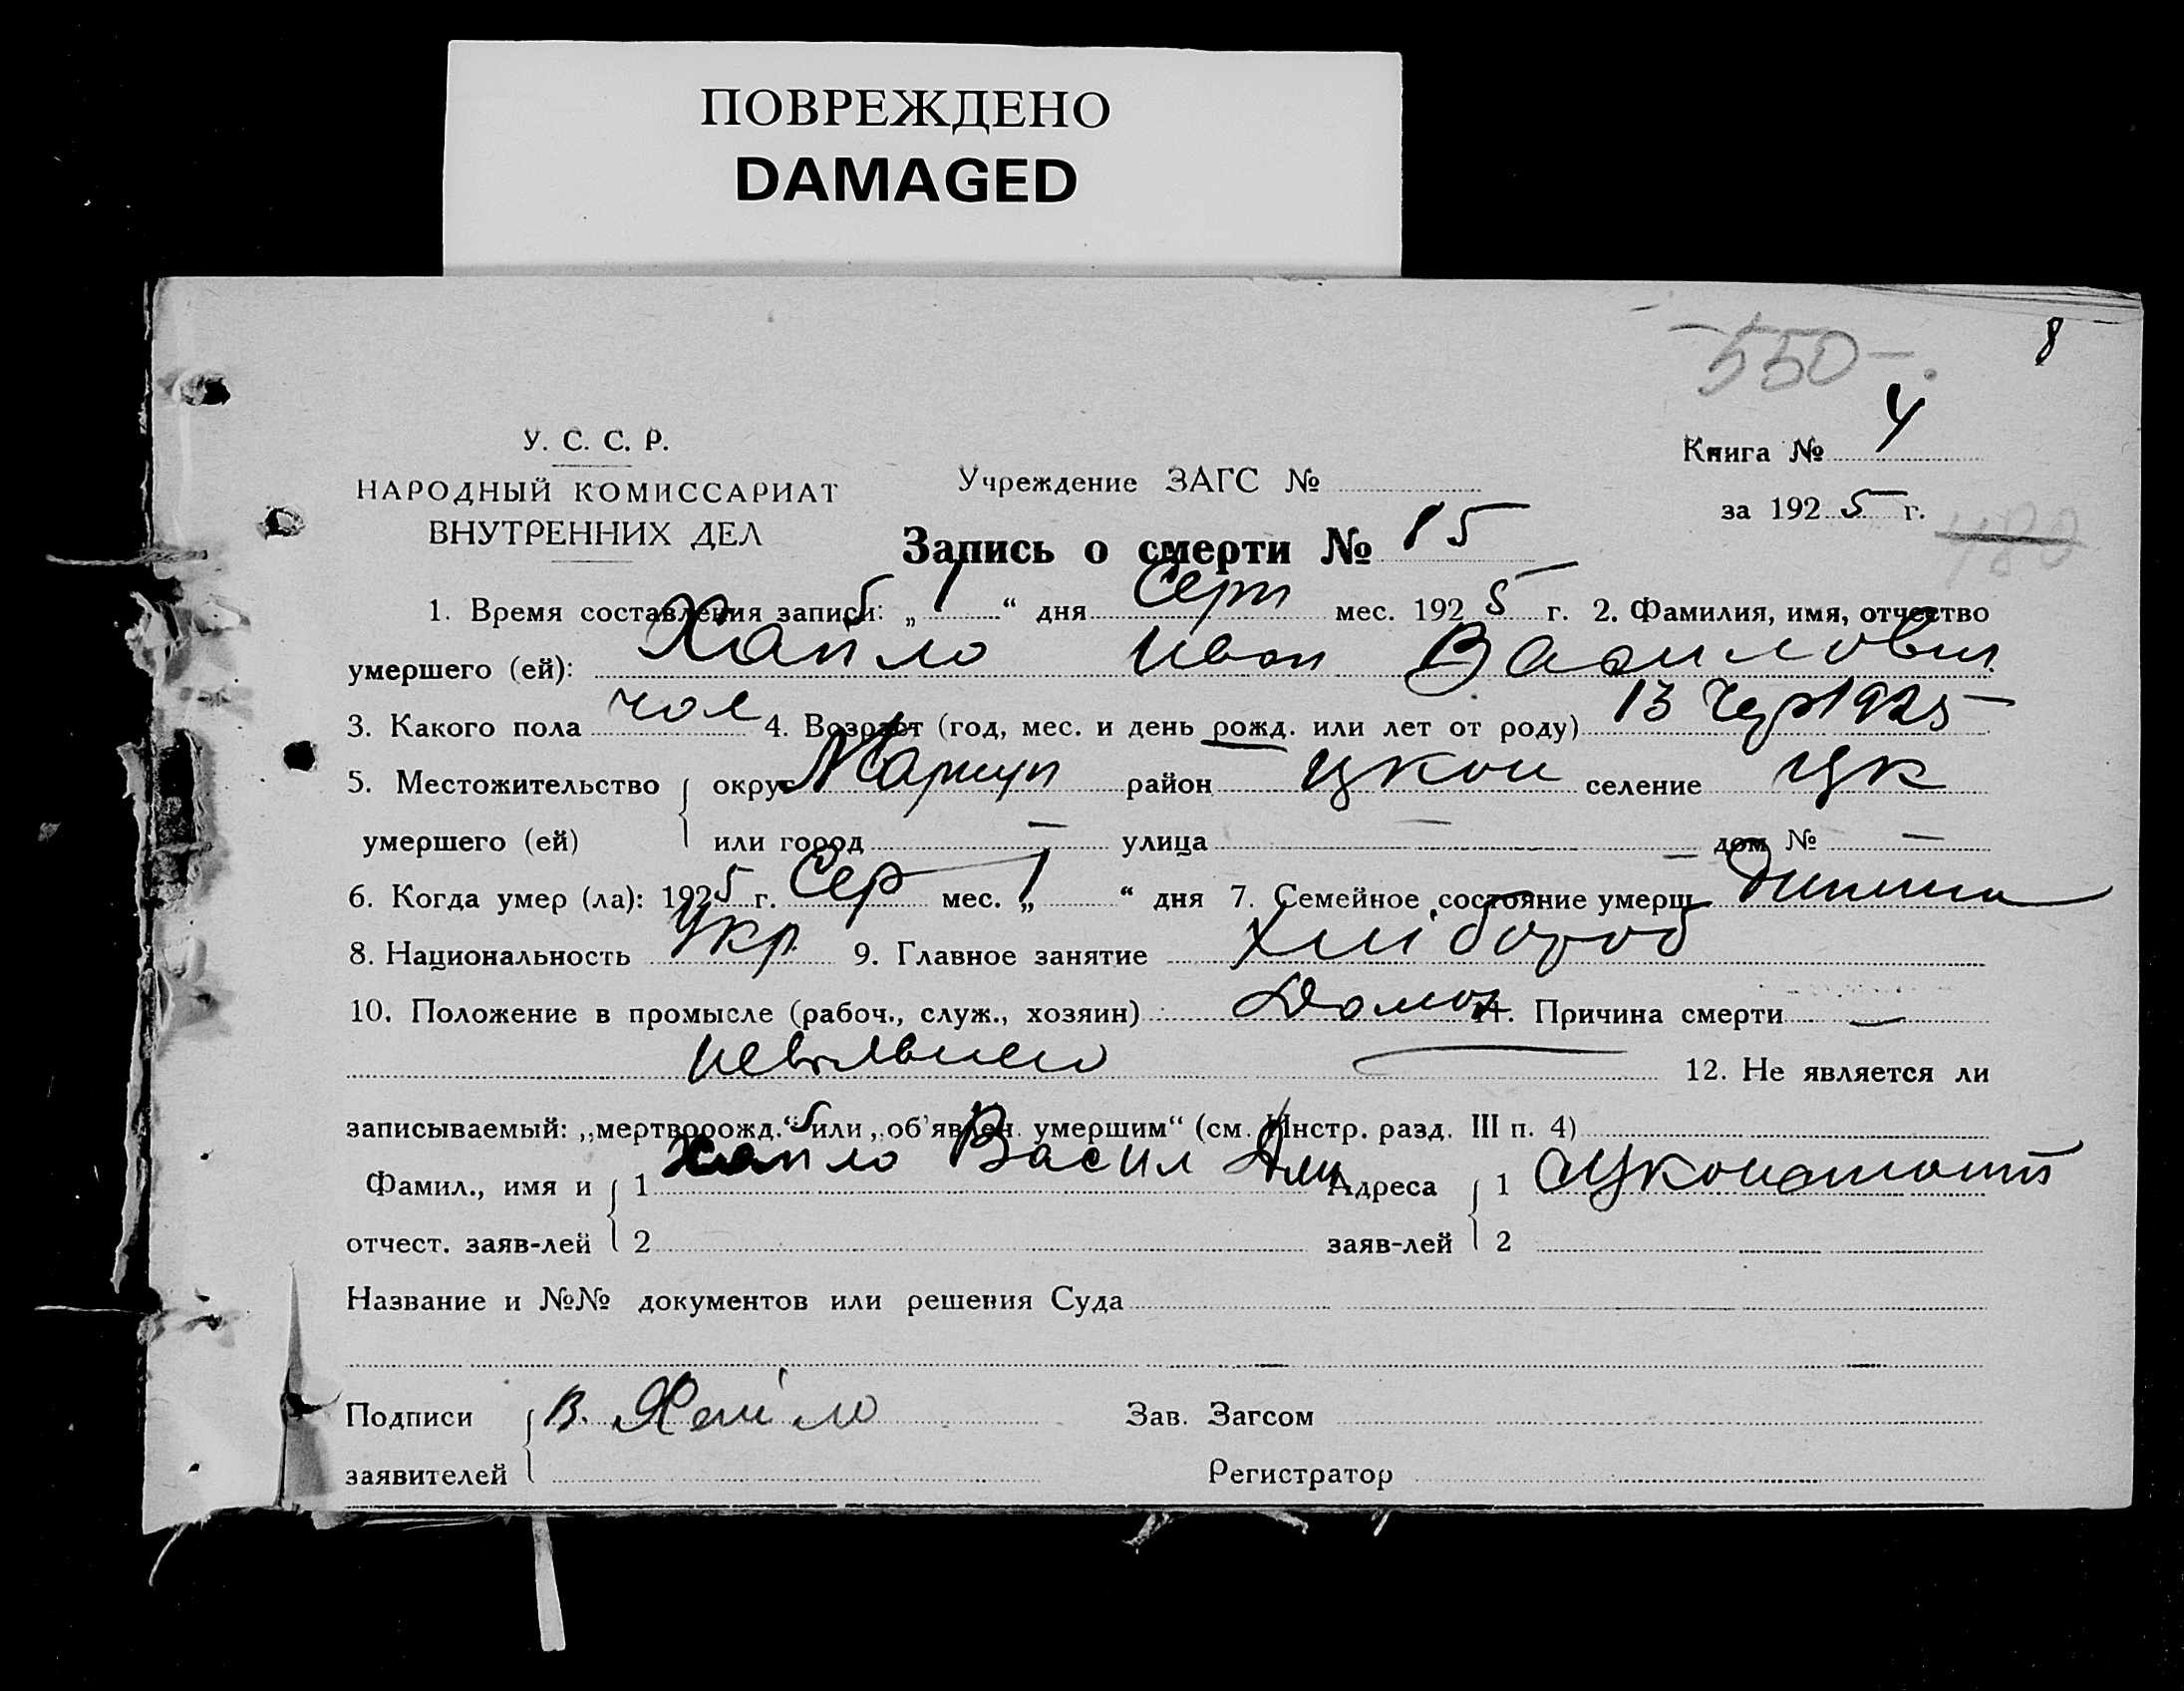 ПОВРЕЖДЕНО
DAMAGED
8
550
У. С. С. Р.
НАРОДНЫЙ КОМИССАРИАТ
ВНУТРЕННИХ ДЕЛ
Учреждение ЗАГС №
Книга № 4
за 1925 г.
480
Запись о смерти № 15
1. Время составления записи: „ 1 “ дня Серп мес. 1925 г. 2. Фамилия, имя, отчество
умершего (ей): Хапло Иван Василович
3. Какого пола чол 4. Возраст (год, мес. и день рожд. или лет от роду) 13 Чер 1925
5. Местожительство округ Мариуп район селение
умершего (ей) или город — улица — дом № —
6. Когда умер (ла): 1925 г. Сер мес. „ 1 “ дня 7. Семейное состояние умерш. Дитина
8. Национальность Укр. 9. Главное занятие Хлібороб
10. Положение в промысле (рабоч., служ., хозяин) 11. Причина смерти —
12. Не является ли
записываемый: „мертворожд.“ или „об’явлен. умершим“ (см. Инстр. разд. III п. 4)
Фамил., имя и 1 Хапло Васил Адреса 1
отчест. заяв-лей 2 заяв-лей 2
Название и №№ документов или решения Суда
Подписи В. Зав. Загсом
заявителей Регистратор